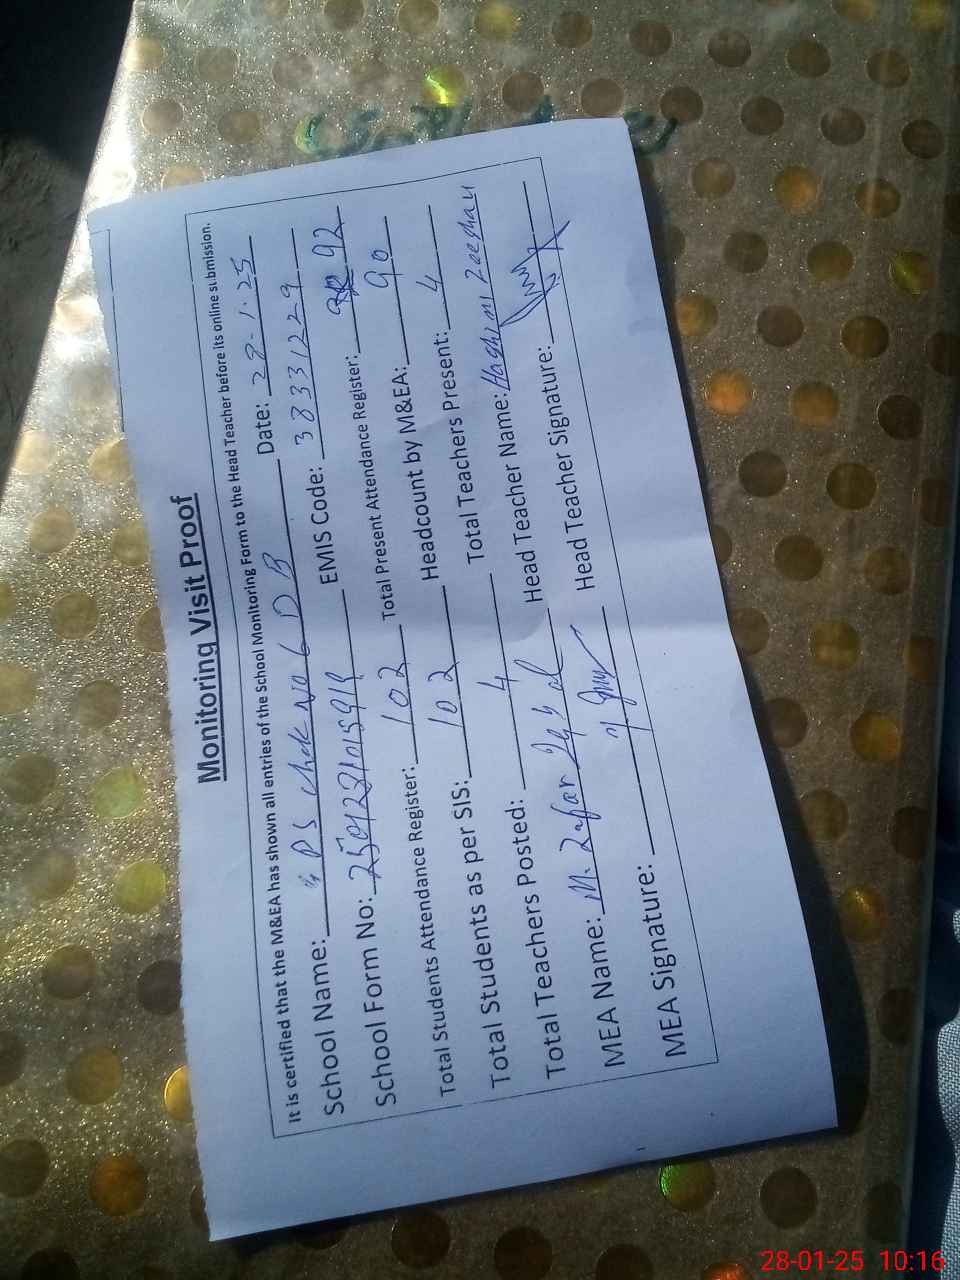 Monitoring Visit Proof
It is certified that the M&EA has shown all entries of the School Monitoring Form to the Head Teacher before its online submission.
School Name: PS Chak No 6 DB Date: 28-1-25
School Form No: EMIS Code: 38331229
Total Students Attendance Register: 102 Total Present Attendance Register: 92
Total Students as per SIS: 102 Headcount by M&EA: 90
Total Teachers Posted: 4 Total Teachers Present: 4
MEA Name: M. Zafar Iqbal Head Teacher Name: Hashmi Zeeshan
MEA Signature: Head Teacher Signature:
28-01-25 10:16